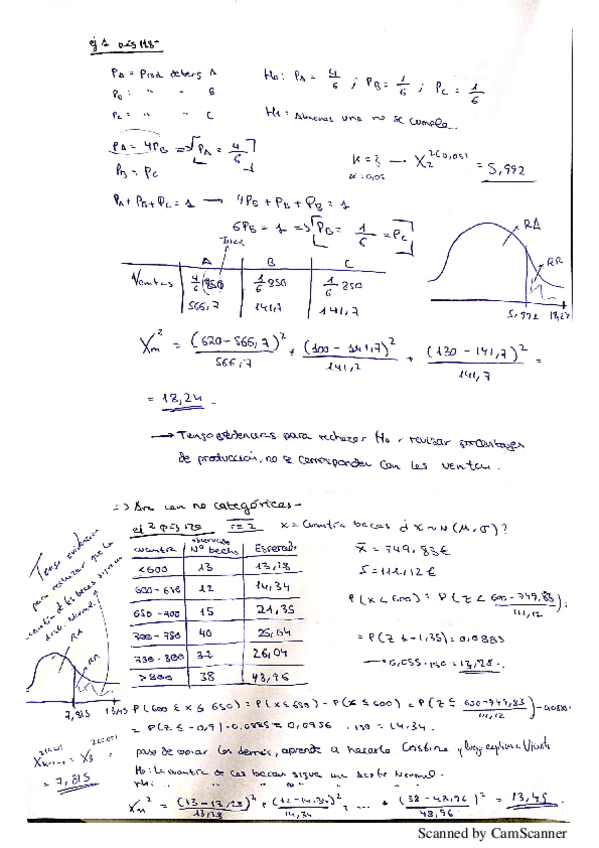 ej 1 pág 118-
PA = Prod. detergs A
PB = " " B
PC = " " C
H0: PA = 4/6 ; PB = 1/6 ; PC = 1/6
H1: Almenos una no se cumple.
PA = 4PB => PA = 4/6
PB = PC
K=3 → X₂²(0,05) = 5,992
α=0,05
PA + PB + PC = 1 → 4PB + PB + PB = 1
6PB = 1 => PB = 1/6 = PC
A B C
Ventas 4/6 850 1/6 850 1/6 850
566,7 141,7 141,7
RA
RR
5,992 18,24
Xm² = (620-566,7)²/566,7 + (100-141,7)²/141,7 + (130-141,7)²/141,7 =
= 18,24
→ Tengo evidencias para rechazar H0, revisar porcentajes
de producción, no se corresponden con las ventas.
con no categóricas-
ej 2 pág 120 r=2 X = Cuantía becas ¿X~N(M,σ)?
Cuantía observado Nº becas Esperado
<600 13 13,28
600-650 12 14,34
650-700 15 21,35
700-750 40 25,04
750-800 32 26,04
>800 38 43,96
x̄ = 749,83€
S = 111,12€
P(X<600) = P(Z< 600-749,83/111,12) =
= P(Z<-1,35) = 0,0885
13,28.
Tengo evidencias
para rechazar que la
cuantía de las becas sigue una
dist. Normal.
RA
RR
7,815 13,45
P(600 ≤ X ≤ 650) = P(X≤650) - P(X≤600) = P(Z≤ 650-749,83/111,12) - 0,0885.
= P(Z≤-0,9) - 0,0885 = 0,0956 . 150 = 14,34.
= 7,815
paso de copiar los demás, aprende a hacerlo Cristina y luego explícase
H0: La cuantía de las becas sigue una distb Normal.
H1: " " " " no " " "
Xm² = (13-13,28)²/13,28 + (12-14,34)²/14,34 + ... + (38-43,96)²/43,96 = 13,45
Scanned by CamScanner